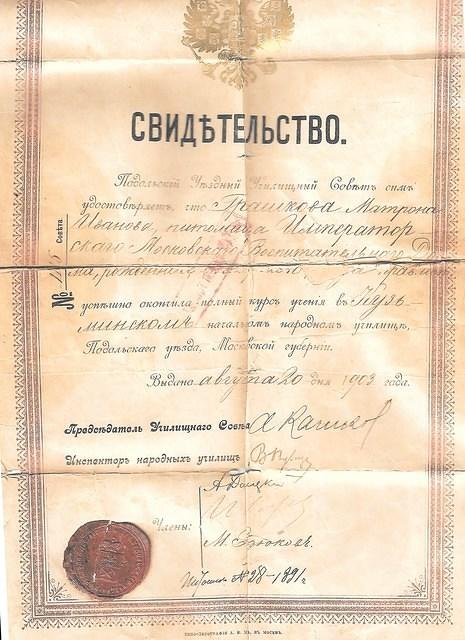 СВИДѢТЕЛЬСТВО.
Подольскій Уѣздный Училищный Совѣтъ симъ
удостовѣряетъ, что Грашкова Матрона
Иванова, питомица Император
скаго Московскаго Воспитательнаго До
ма,
№ Совѣта
успѣшно окончила полный курсъ ученія въ Кузь-
минскомъ начальномъ народномъ училищѣ,
Подольскаго уѣзда, Московской губерніи.
Выдано августа 20 дня 1903 года.
Предсѣдатель Училищнаго Совѣта
Инспекторъ народныхъ училищъ
Члены:
М. Брюковъ.
№ 28-1891г